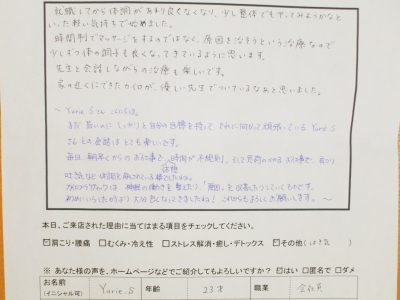 就職してから体調があまり良くなくなり、少し整体でもやってみようかなと
いった軽い気持ちで始めました。
時間制でマッサージをするのではなく、原因を治そうという治療なので
少しずつ体の調子も良くなってきているように思います。
先生と会話しながらの治療も楽しいです。
家の近くにできたカイロが、優しい先生でついているなあと思いました。
～Yurie.Sさん こんにちは。
まだ若いのに しっかりと自分の目標を持って それに向かって頑張っている Yurie.S
さんとの会話は とても楽しいです。
毎日、朝早くからの お仕事で、時間が不規則、そして
体調を
カイロプラクティックは 神経の働きを整えたり、「原因」を改善したりしていくものです。
初めいらした時より 大分良くなってきましたね！これからもよろしくお願いします。～
本日、ご来店された理由に当てはまる項目をチェックしてください。
☑肩こり・腰痛 □むくみ・冷え性 □ストレス解消・癒し・デトックス ☑その他（はき気）
※ あなた様の声を、ホームページなどでご紹介してもよろしいですか？ ☑はい ■匿名で □ダメ
お名前 Yurie.S 年齢 23才 職業 会社員
(イニシャル可)